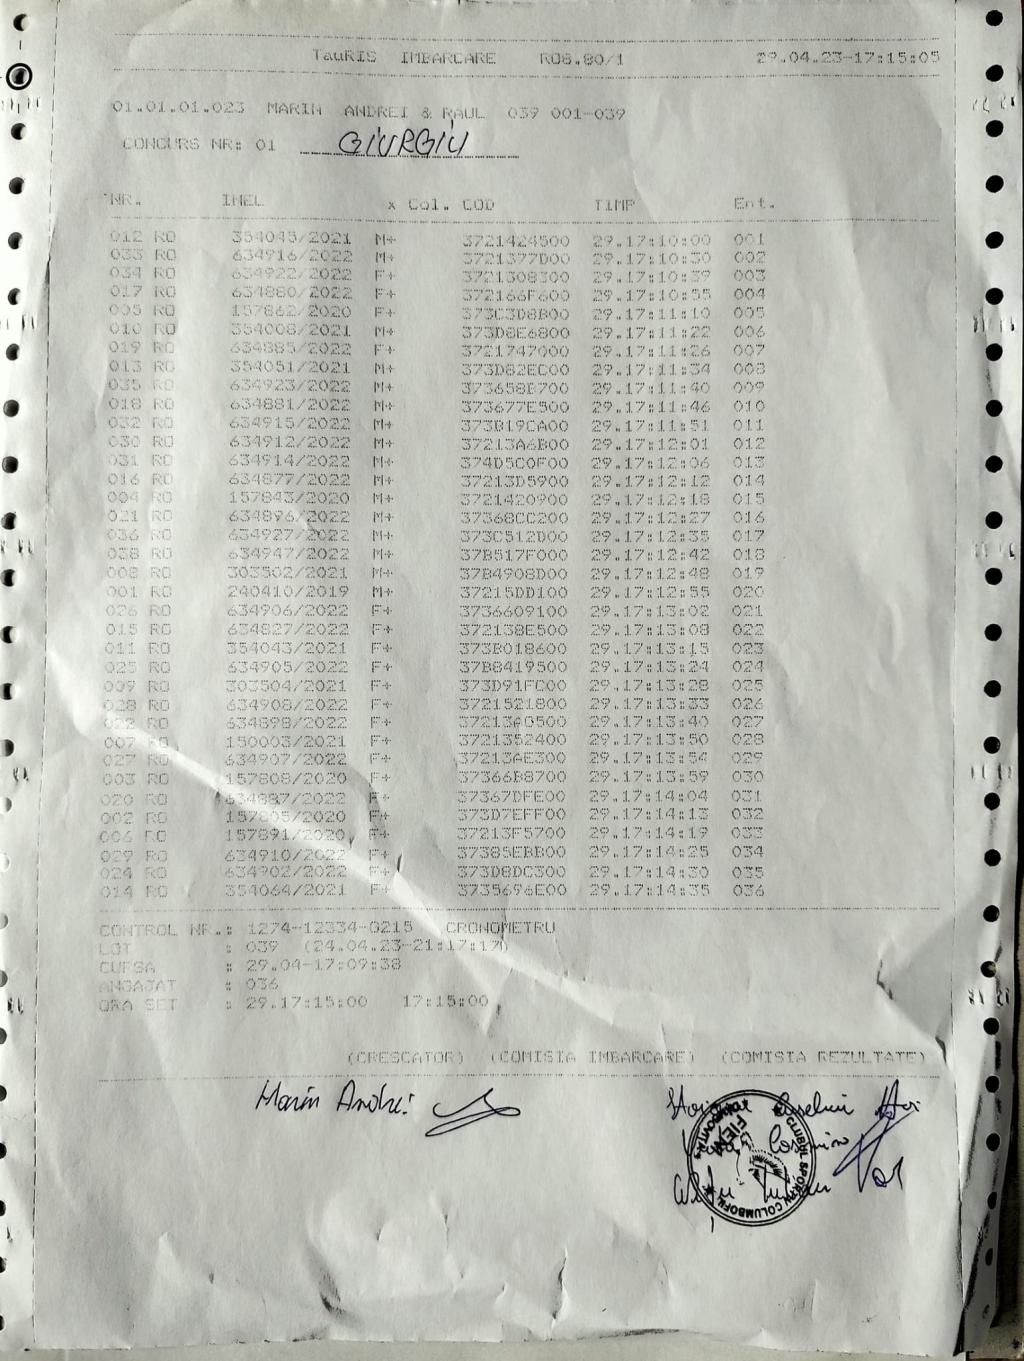 TauRIS IMBARCARE RO8.80/1 29.04.23-17:15:05
01.01.01.023 MARIN ANDREI & RAUL 039 001-039
CONCURS NR: 01 GIURGIU
NR. INEL x Col. COD TIMP Ent.
012 RO 354045/2021 M+ 3721424500 29.17:10:00 001
033 RO 634916/2022 M+ 3721377D00 29.17:10:30 002
034 RO 634922/2022 F+ 3721308300 29.17:10:39 003
017 RO 634880/2022 F+ 372166F600 29.17:10:55 004
005 RO 157862/2020 F+ 373C3D8B00 29.17:11:10 005
010 RO 354008/2021 M+ 373D8E6800 29.17:11:22 006
019 RO 634885/2022 F+ 3721747000 29.17:11:26 007
013 RO 354051/2021 M+ 373D82EC00 29.17:11:34 008
035 RO 634923/2022 M+ 373658B700 29.17:11:40 009
018 RO 634881/2022 M+ 373677E500 29.17:11:46 010
032 RO 634915/2022 M+ 373B19CA00 29.17:11:51 011
030 RO 634912/2022 M+ 37213A6B00 29.17:12:01 012
031 RO 634914/2022 M+ 374D5C0F00 29.17:12:06 013
016 RO 634877/2022 M+ 37213D5900 29.17:12:12 014
004 RO 157843/2020 M+ 3721420900 29.17:12:18 015
021 RO 634896/2022 M+ 37368CC200 29.17:12:27 016
036 RO 634927/2022 M+ 373C512D00 29.17:12:35 017
038 RO 634947/2022 M+ 37B517F000 29.17:12:42 018
008 RO 303502/2021 M+ 37B4908D00 29.17:12:48 019
001 RO 240410/2019 M+ 37215DD100 29.17:12:55 020
026 RO 634906/2022 F+ 3736609100 29.17:13:02 021
015 RO 634827/2022 F+ 372138E500 29.17:13:08 022
011 RO 354043/2021 F+ 373B018600 29.17:13:15 023
025 RO 634905/2022 F+ 37B8419500 29.17:13:24 024
009 RO 303504/2021 F+ 373D91FC00 29.17:13:28 025
028 RO 634908/2022 F+ 3721521800 29.17:13:33 026
022 RO 634898/2022 F+ 37213A0500 29.17:13:40 027
007 RO 150003/2021 F+ 3721352400 29.17:13:50 028
027 RO 634907/2022 F+ 37213AE300 29.17:13:54 029
003 RO 157808/2020 F+ 37366B8700 29.17:13:59 030
020 RO 634887/2022 F+ 37367DFE00 29.17:14:04 031
002 RO 157805/2020 F+ 373D7EFF00 29.17:14:13 032
006 RO 157891/2020 F+ 37213F5700 29.17:14:19 033
029 RO 634910/2022 F+ 37385EBB00 29.17:14:25 034
024 RO 634902/2022 F+ 373D8DC300 29.17:14:30 035
014 RO 354064/2021 F+ 3735696E00 29.17:14:35 036
CONTROL NR.: 1274-12334-0215 CRONOMETRU
LOT : 039 (24.04.23-21:17:17)
CURSA : 29.04-17:09:38
ANGAJAT : 036
ORA SET : 29.17:15:00 17:15:00
(CRESCATOR) (COMISIA IMBARCARE) (COMISIA REZULTATE)
Marin Andrei
CLUBUL SPORTIV COLUMBOFIL
FIENI